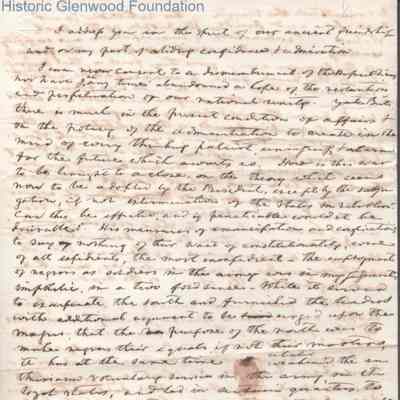 Historic Glenwood Foundation
I address you in the spirit of our ancient friendship
and on my part of abiding confidence & admiration
I can never consent to a dismemberment of the Republic
nor have I any time abandoned a hope of the restoration
and perpetuation of our national unity. Yet
there is much in the present condition of affairs &
in the policy of the administration to create in the
mind of every thinking patriot anxiety & alarm
for the future which awaits us. How is this war
to be brought to a close, on the theory which seems
now to be adopted by the President, except by the subju
gation, if not extermination of the States in rebellion.
Can this be effected, and if practicable would it be
desirable? His measures of emancipation and confiscation
to say nothing of their want of constitutionality, were
of all expedients, the most inexpedient & the employment
of negroes as soldiers in the army was in my judgment
impolitic, in a two fold sense. While it served
to exasperate the south and furnished the leaders
with additional argument to be urged upon the
masses, that the purpose of the north was to
make negroes their equals if not their masters,
it has at the same time weakened the en
thusiasm voluntary service in the army, in the
loyal states, and led in certain quarters, to